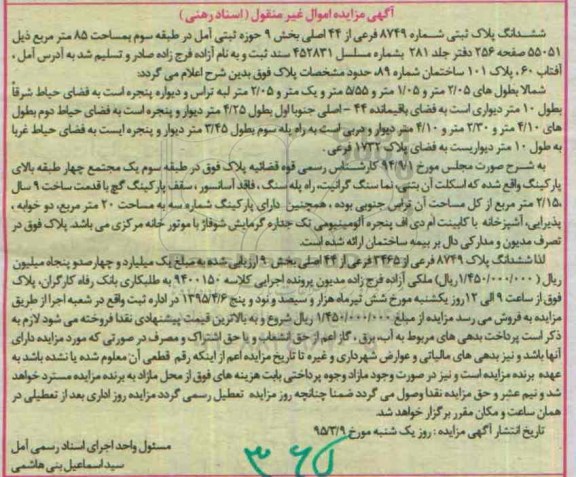 آگهی مزایده اموال غیر منقول (اسناد رهنی)
ششدانگ پلاک ثبتی شماره ۸۷۴۹ فرعی از ۴۴ اصلی بخش ۹ حوزه ثبتی آمل در طبقه سوم بمساحت ۸۵ متر مربع ذیل
۵۵۰۵۱ صفحه ۲۵۶ دفتر جلد ۲۸۱ بشماره مسلسل ۴۵۲۸۳۱ سند ثبت و به نام آزاده فرج زاده صادر و تسلیم شد به آدرس آمل،
آفتاب ۶۰، پلاک ۱۰۱ ساختمان شماره ۸۹، حدود مشخصات پلاک فوق بدین شرح اعلام می گردد:
شمالا بطول های ۲/۰۵ متر و ۱/۰۵ متر و ۵/۵۵ متر و یک متر و ۲/۰۵ متر لبه تراس و دیواره پنجره است به فضای حیاط شرقاً
بطول ۱۰ متر دیواری است به فضای باقیمانده ۴۴ - اصلی جنوبا اول بطول ۴/۲۵ متر دیوار و پنجره است به فضای حیاط دوم بطول
های ۴/۱۰ متر و ۲/۳۰ متر و ۴/۱۰ متر دیوار و دربی است به راه پله سوم بطول ۳/۴۵ متر دیوار و پنجره ایست به فضای حیاط غربا
به طول ۱۰ متر دیواریست به فضای پلاک ۱۷۳۲ فرعی.
به شرح صورت مجلس مورخ ۹۴/۹/۱ کارشناس رسمی قوه قضائیه پلاک فوق در طبقه سوم یک مجتمع چهار طبقه بالای
پارکینگ واقع شده که اسکلت آن بتنی، نما سنگ گرانیت، راه پله سنگ، فاقد آسانسور، سقف پارکینگ گچ با قدمت ساخت ۹ سال
۲/۱۵، متر مربع از کل مساحت آن تراس جنوبی بوده، همچنین دارای پارکینگ شماره سه به مساحت ۲۰ متر مربع، دو خوابه،
پذیرایی، آشپزخانه با کابینت ام دی اف پنجره آلومینیومی تک جداره گرمایش شوفاژ با موتور خانه مرکزی می باشد. پلاک فوق در
تصرف مدیون و مدارکی دال بر بیمه ساختمان ارائه نشده است.
لذا ششدانگ پلاک ۸۷۴۹ فرعی از ۳۴۶۵ فرعی از ۴۴ اصلی بخش ۹ ارزیابی شده به مبلغ یک میلیارد و چهارصد و پنجاه میلیون
ریال (۱/۴۵۰/۰۰۰/۰۰۰ ریال) ملکی آزاده فرج زاده مدیون پرونده اجرایی کلاسه ۹۴۰۰۱۵۰ به طلبکاری بانک رفاه کارگران، پلاک
فوق از ساعت ۹ الی ۱۲ روز یکشنبه مورخ شش تیرماه هزار و سیصد و نود و پنج ۱۳۹۵/۴/۶ در اداره ثبت واقع در شعبه اجرا از طریق
مزایده به فروش می رسد مزایده از مبلغ ۱/۴۵۰/۰۰۰/۰۰۰ ریال شروع و به بالاترین قیمت پیشنهادی نقدا فروخته می شود لازم به
ذکر است پرداخت بدهی های مربوط به آب، برق، گاز اعم از حق انشعاب و یا حق اشتراک و مصرف در صورتی که مورد مزایده دارای
آنها باشد و نیز بدهی های مالیاتی و عوارض شهرداری و غیره تا تاریخ مزایده اعم از اینکه رقم قطعی آن معلوم شده یا نشده باشد به
عهده برنده مزایده است و نیز در صورت وجود مازاد وجوه پرداختی بابت هزینه های فوق از محل مازاد به برنده مزایده مسترد خواهد
شد و نیم عشر و حق مزایده نقدا وصول می گردد ضمنا چنانچه روز مزایده تعطیل رسمی گردد مزایده روز اداری بعد از تعطیلی در
همان ساعت و مکان مقرر برگزار خواهد شد.
تاریخ انتشار آگهی مزایده: روز یک شنبه مورخ ۹۵/۳/۹
مسئول واحد اجرای اسناد رسمی آمل
سید اسماعیل بنی هاشمی